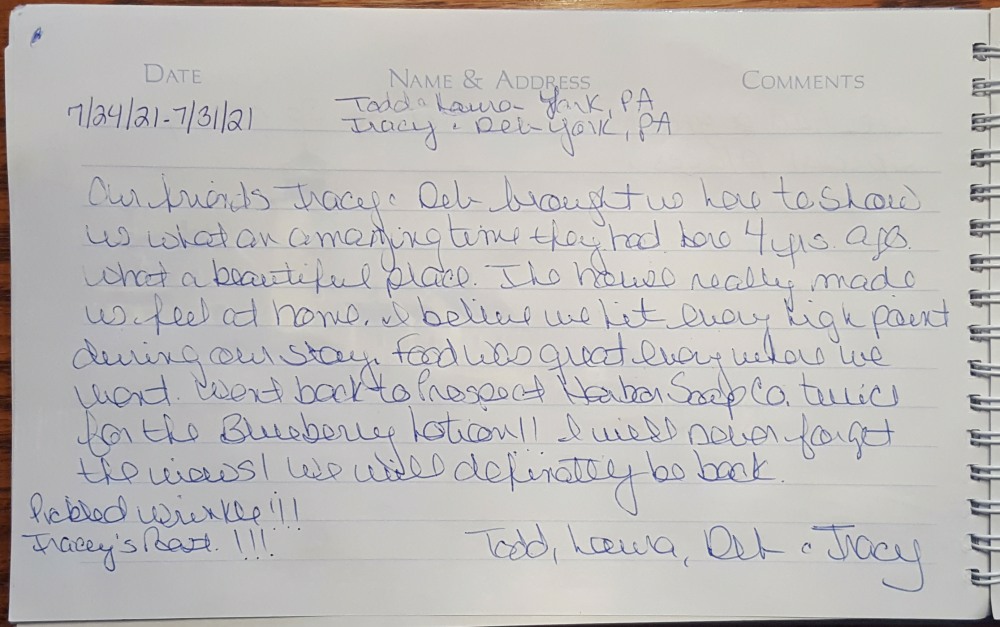 DATE NAME & ADDRESS COMMENTS
7/24/21-7/31/21 Todd & Laura - York, PA
Tracy & Deb - York, PA
Our friends Tracy & Deb brought us here to show
us what an amazing time they had here 4 yrs. ago.
What a beautiful place. The house really made
us feel at home. I believe we hit every high point
during our stay. Food was great everywhere we
went. Went back to Prospect Harbor Soap Co. twice
for the Blueberry Lotion!! I will never forget
the views! We will definately be back.
Pickled Wrinkle!!!
Tracey's Rest. !!!
Todd, Laura, Deb & Tracy